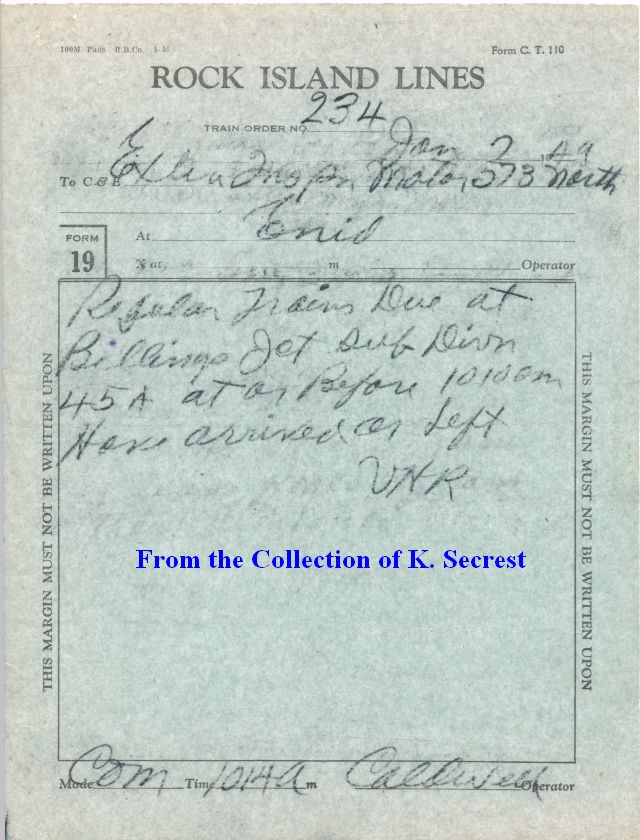 100M Pads R.B.Co. 4-46 Form C. T. 110
ROCK ISLAND LINES
TRAIN ORDER NO. 234
Jan 7 1949
To C & E Extra Inspn Motor 573 North
At Enid
FORM 19
X at m Operator
Regular Trains Due at
Billings Jct Sub Divn
45A at or Before 1010am
Have arrived or Left
VHR
THIS MARGIN MUST NOT BE WRITTEN UPON
THIS MARGIN MUST NOT BE WRITTEN UPON
From the Collection of K. Secrest
Made Com Time 1014A m Caldwell Operator